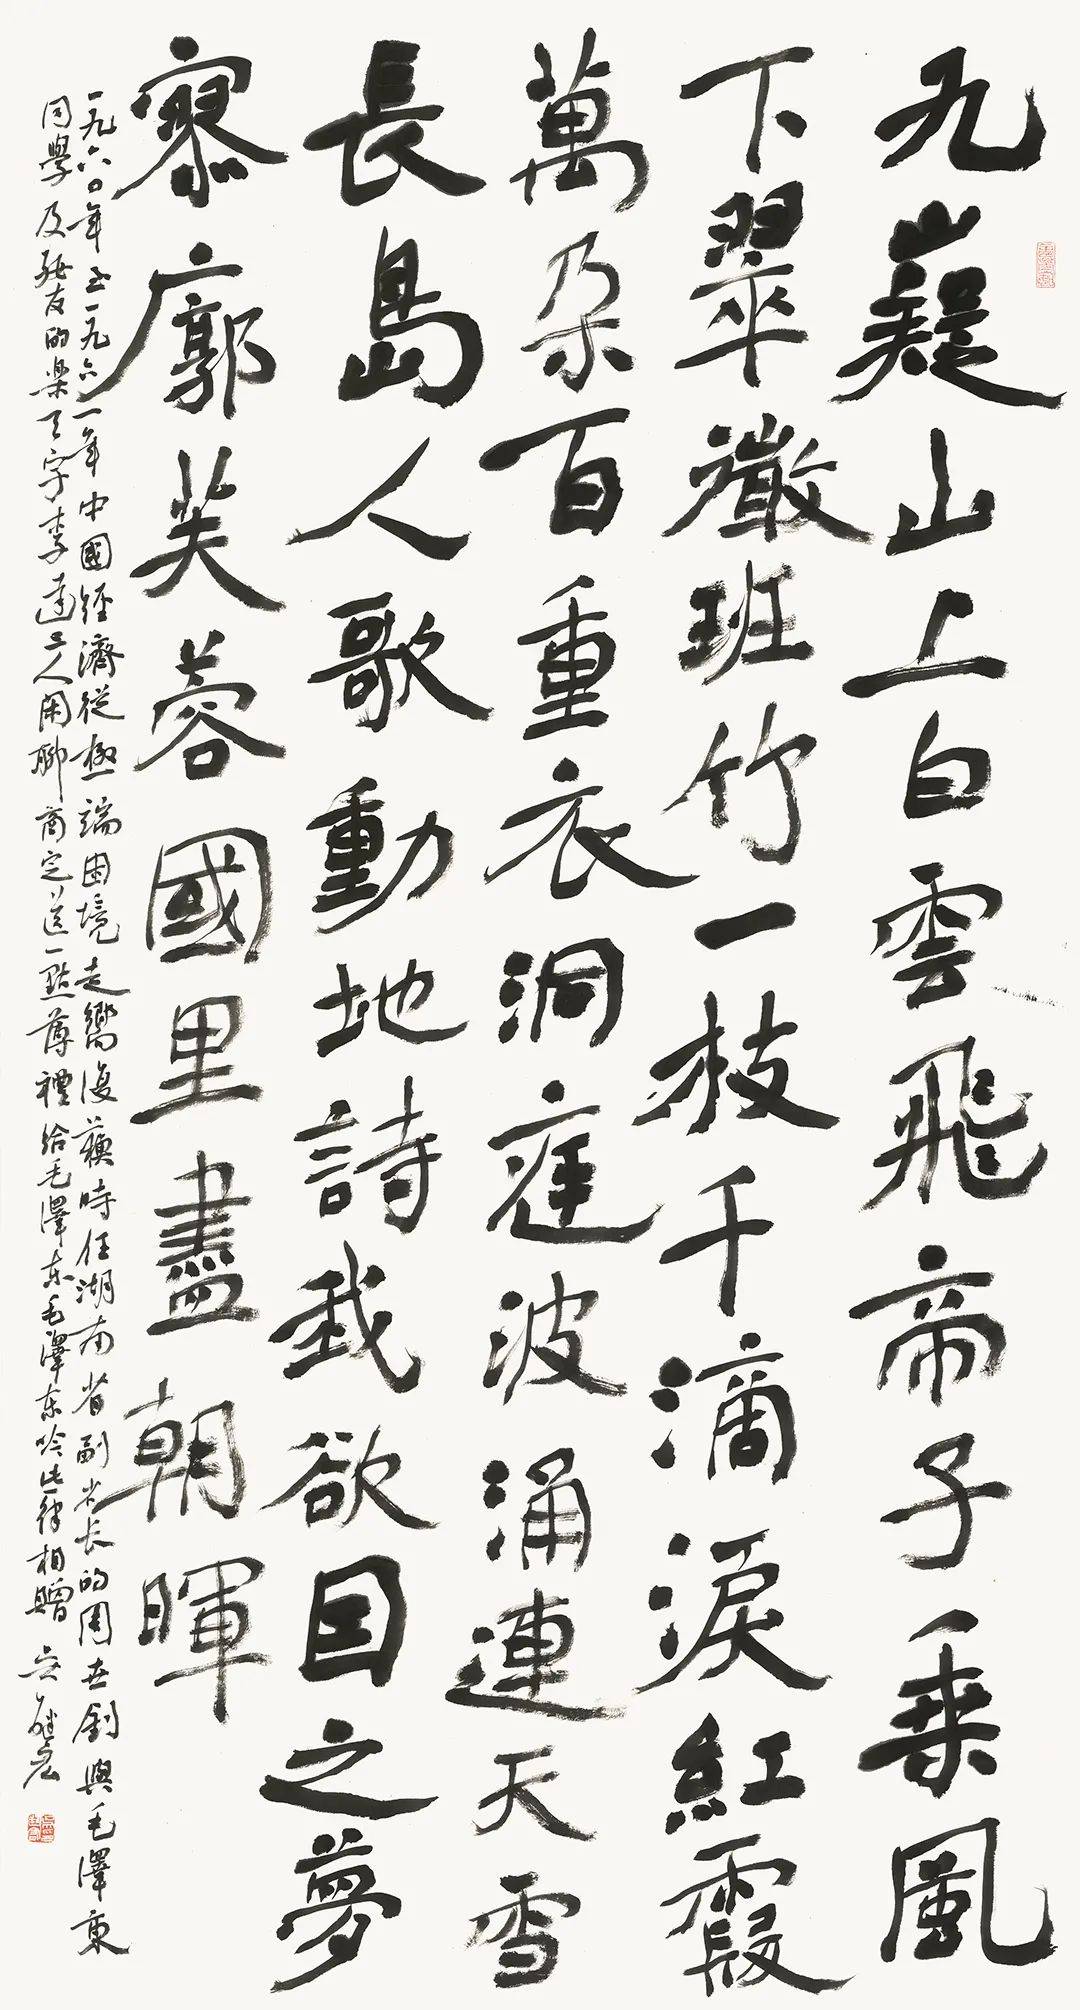 九嶷山上白雲飛帝子乘風
下翠微班竹一枝千滴淚紅霞
萬朵百重衣洞庭波涌連天雪
長島人歌動地詩我欲因之夢
寥廓芙蓉國里盡朝暉
一九六〇年至一九六一年中國經濟從極端困境走嚮復蘇時任湖南省副省長的周世釗與毛澤東
同學及友的樂天宇李達三人閑聊商定送一點薄禮給毛澤東毛澤東吟此律相贈